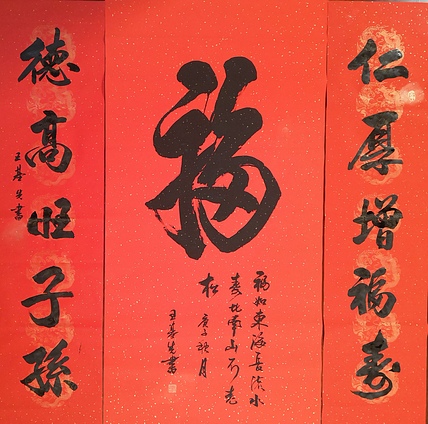 仁厚增福寿
福
福如東海長流水
寿比南山不老
松 庚子秋月
王慕先書
德高旺子孫
王慕先書